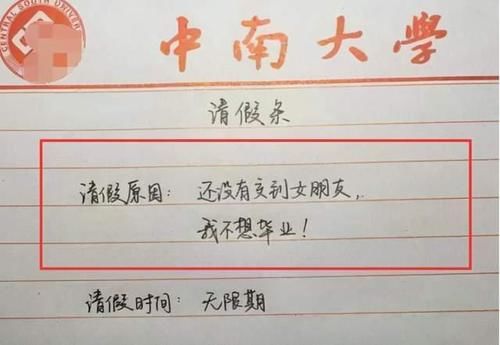 CENTRAL SOUTH UNIVER
中南大学
请假条
请假原因：还没有交到女朋友，
我不想毕业！
请假时间：无限期